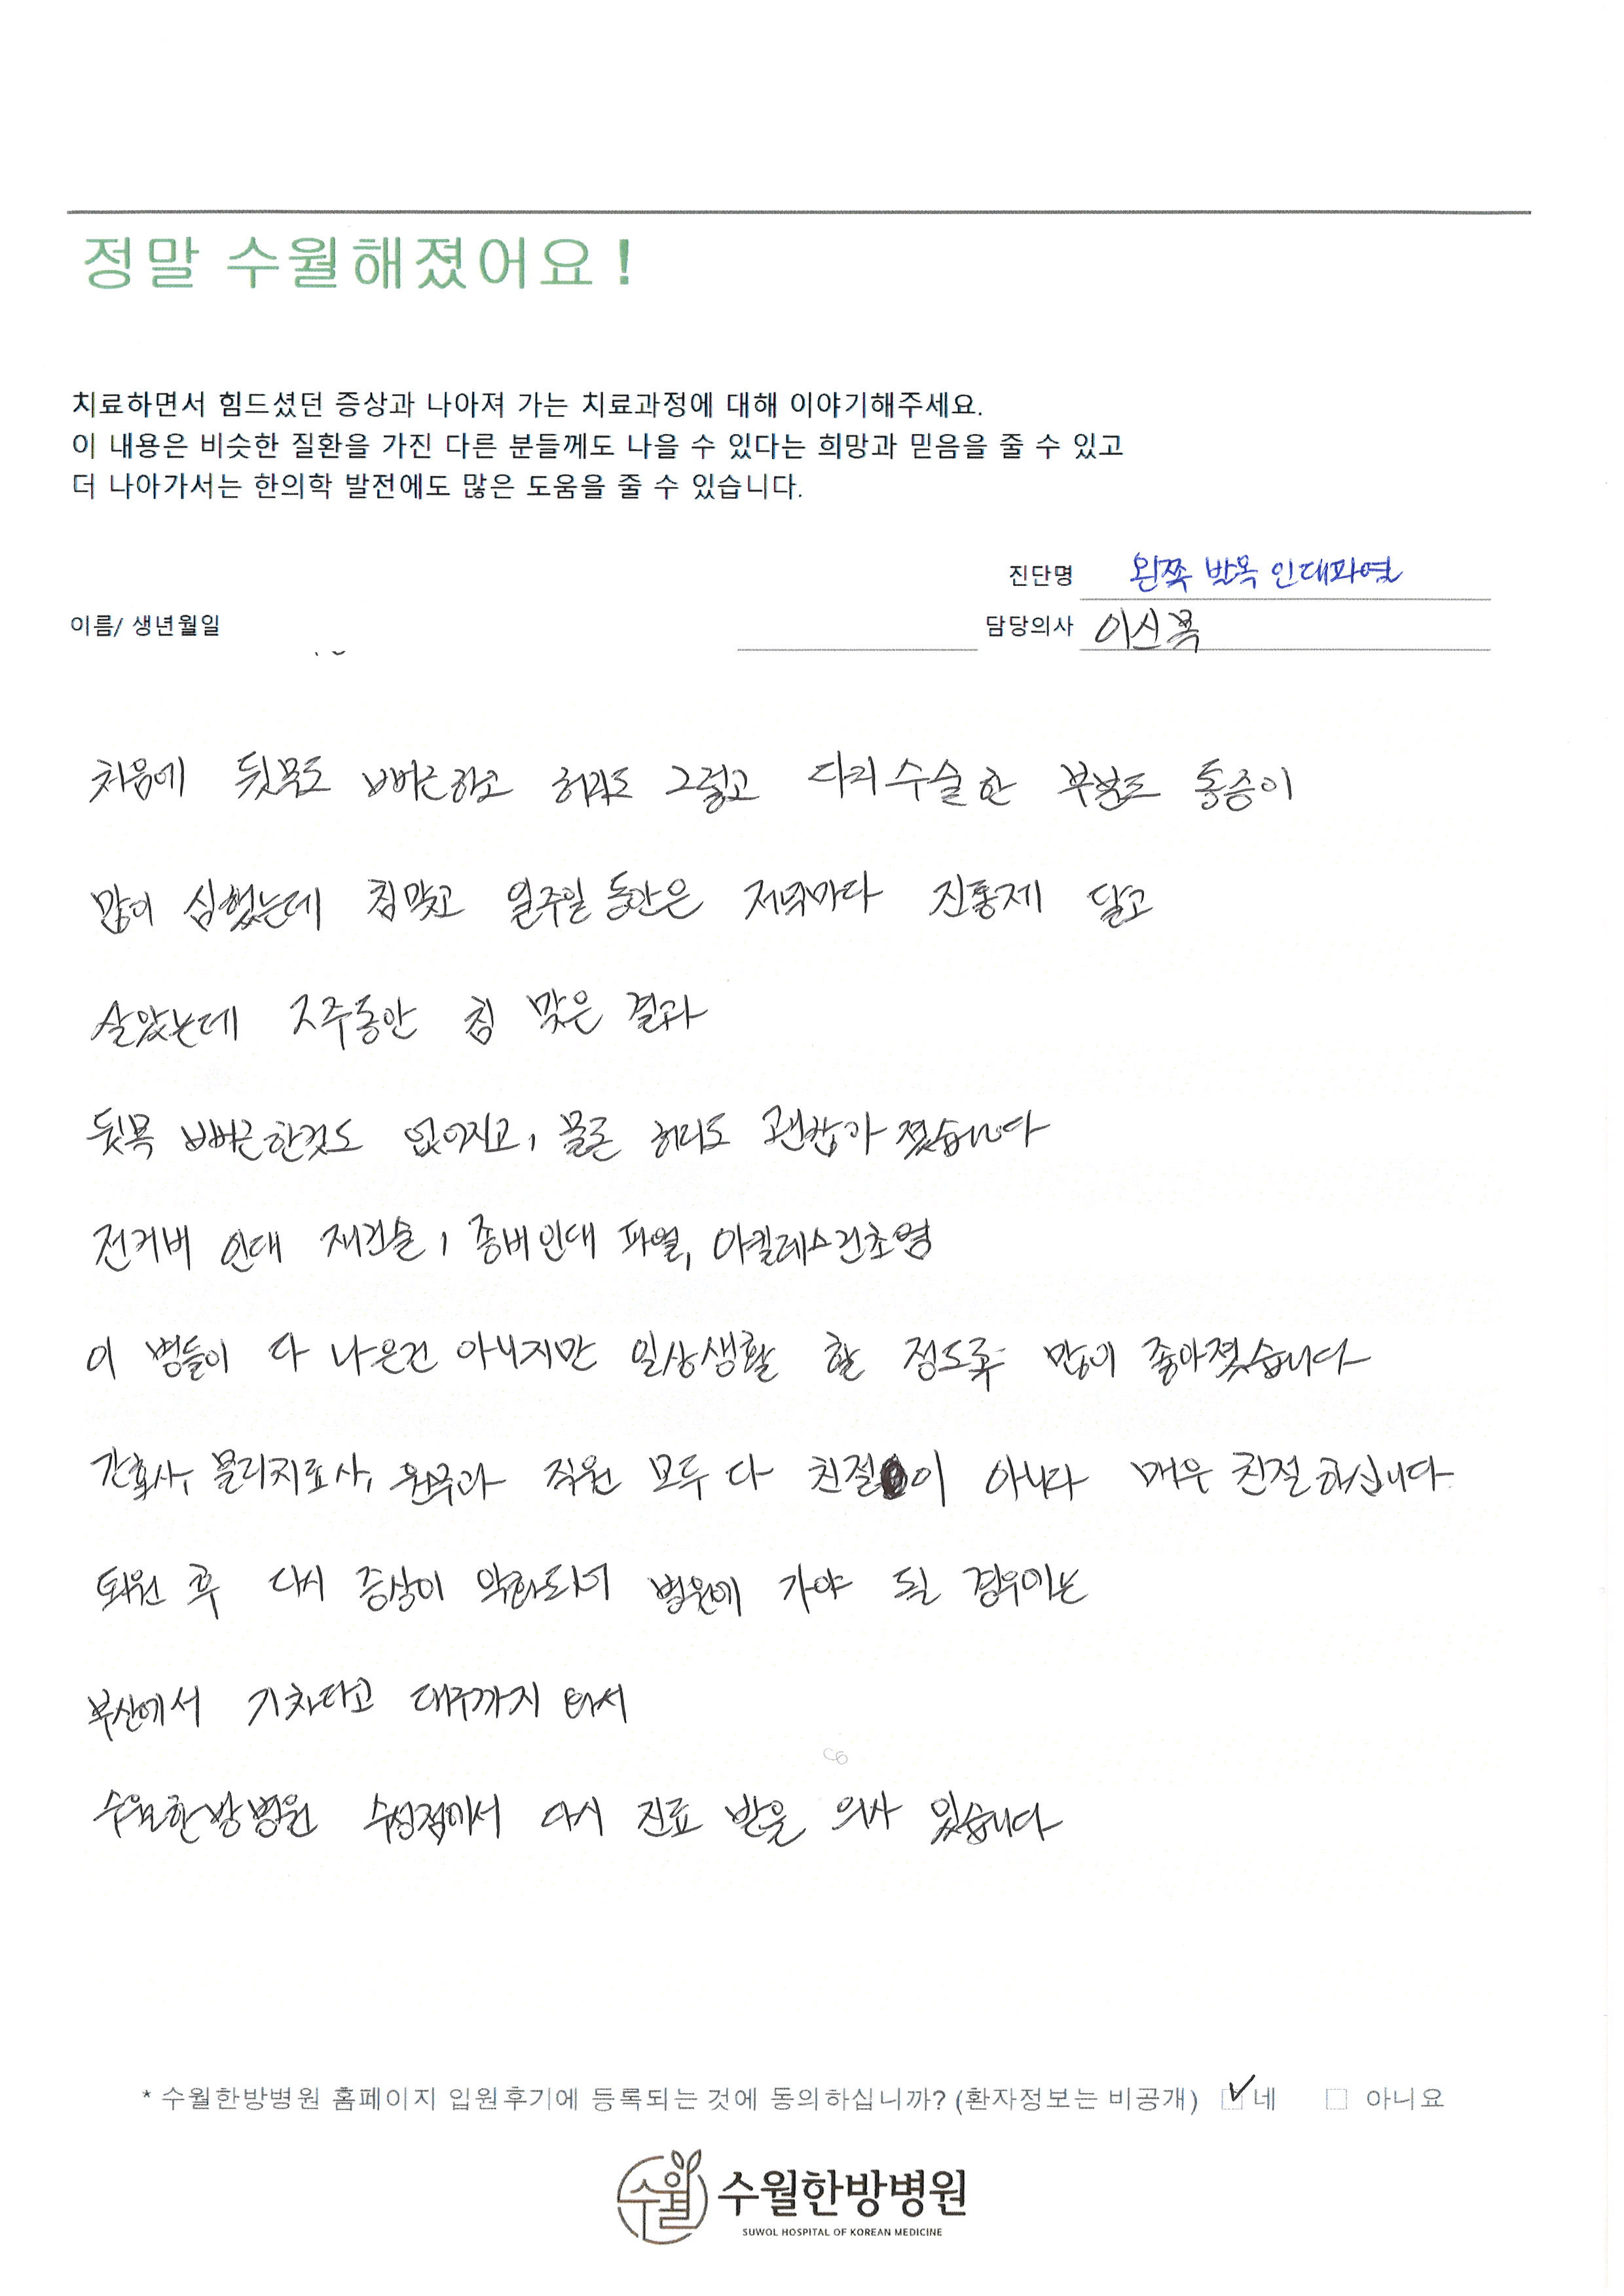 정말 수월해졌어요!
치료하면서 힘드셨던 증상과 나아져 가는 치료과정에 대해 이야기해주세요.
이 내용은 비슷한 질환을 가진 다른 분들께도 나을 수 있다는 희망과 믿음을 줄 수 있고
더 나아가서는 한의학 발전에도 많은 도움을 줄 수 있습니다.
진단명 왼쪽 발목 인대파열
이름/ 생년월일 담당의사 이신목
처음에 뒷목도 뻐근하고 허리도 그렇고 다리수술한 부분도 통증이
많이 심했는데 침맞고 일주일 동안은 저녁마다 진통제 달고
살았는데 2주동안 침 맞은 결과
뒷목 뻐근한것도 없어지고, 물론 허리도 괜찮아 졌습니다
전거비 인대 재건술, 종비인대 파열, 아킬레스건초염
이 병들이 다 나은건 아니지만 일상생활 할 정도로 많이 좋아졌습니다
간호사, 물리치료사, 원무과 직원 모두 다 친절이 아니다 매우 친절하십니다
퇴원 후 다시 증상이 악화되어 병원에 가야 될 경우에는
부산에서 기차타고 대구까지 와서
수월한방병원 수성점에서 다시 진료 받을 의사 있습니다
* 수월한방병원 홈페이지 입원후기에 등록되는 것에 동의하십니까? (환자정보는 비공개) ☑ 네 □ 아니요
수월 수월한방병원
SUWOL HOSPITAL OF KOREAN MEDICINE